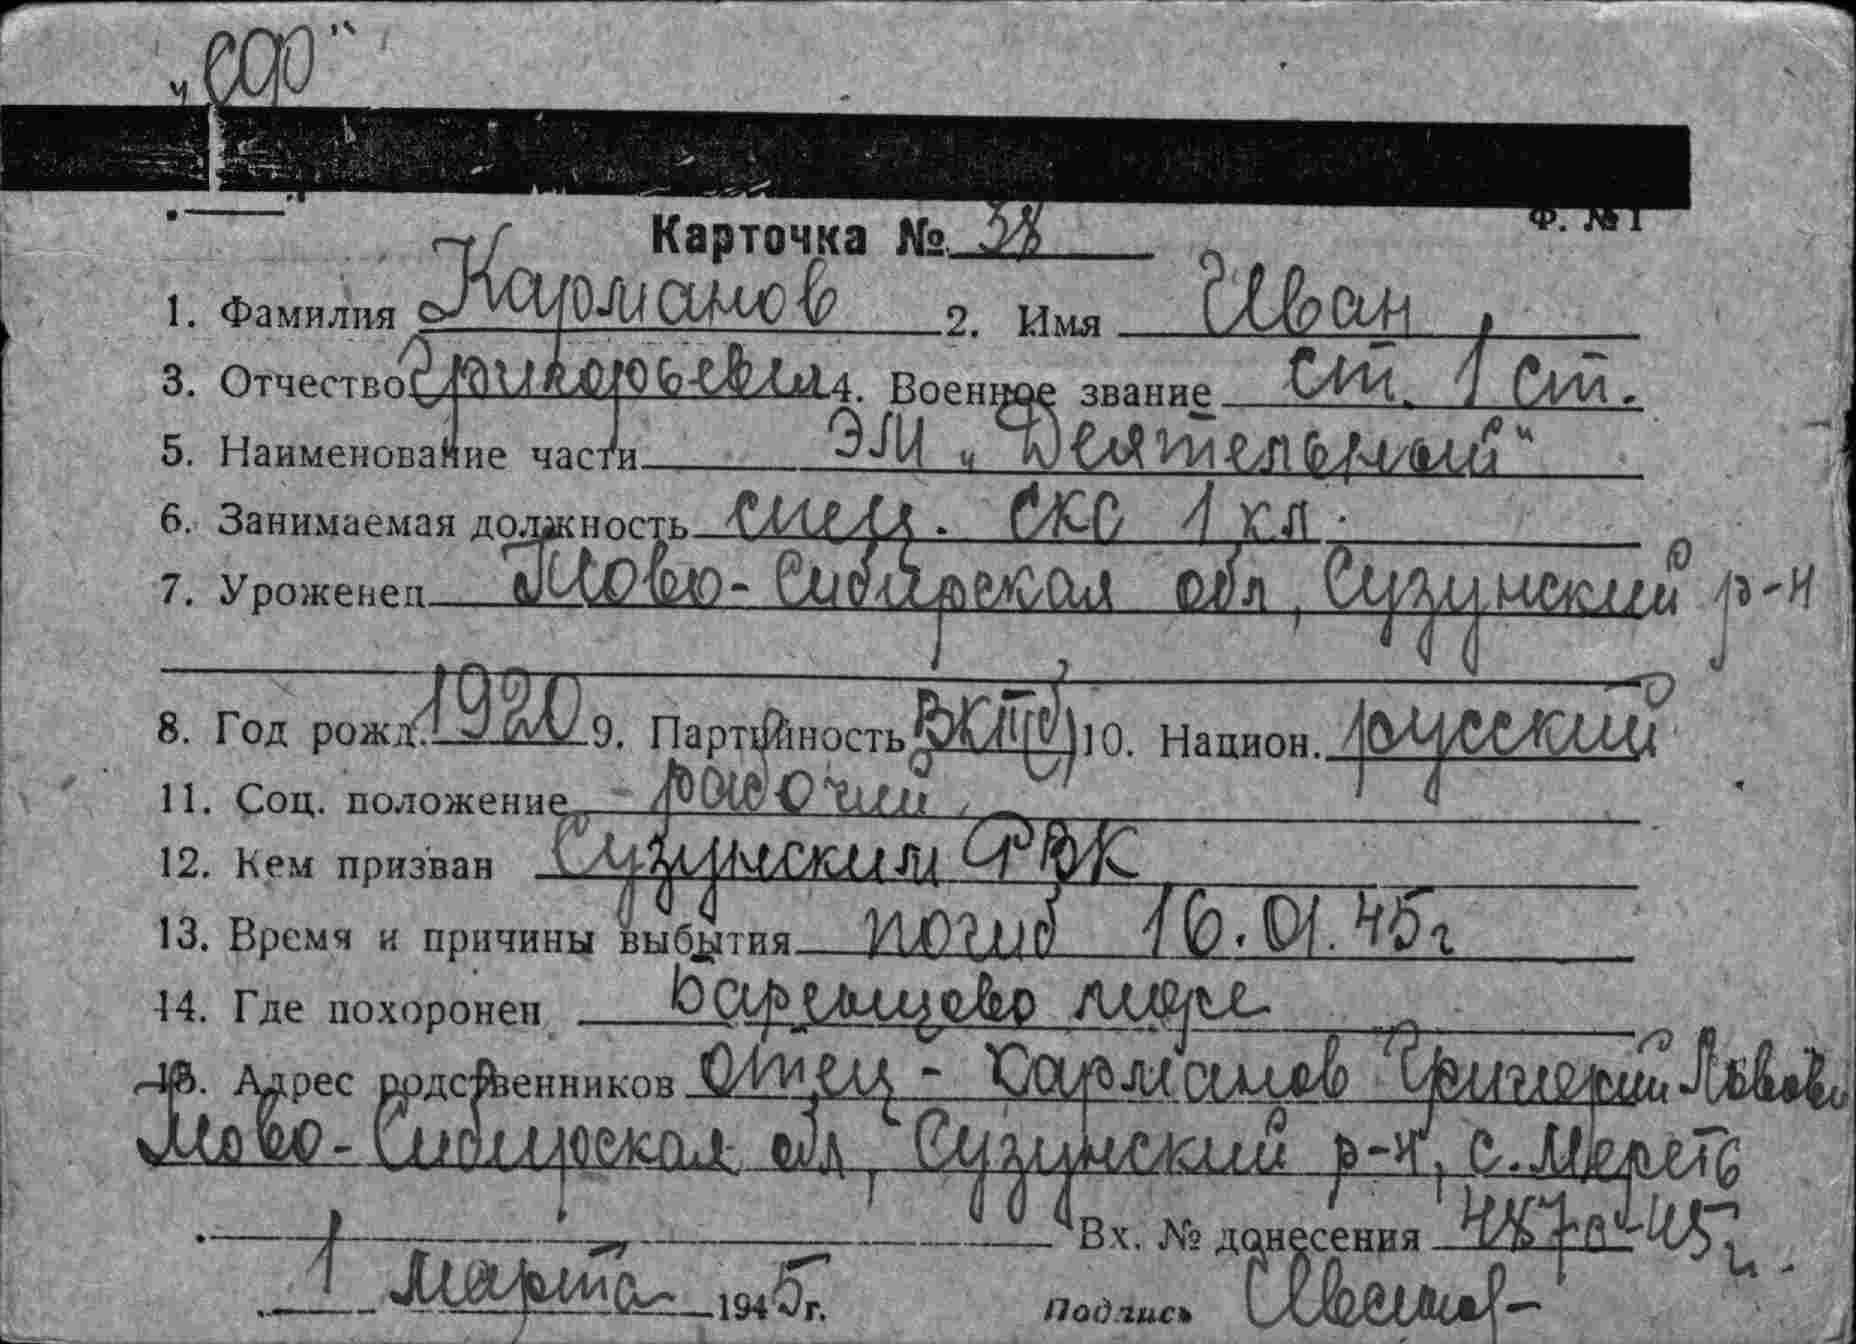 „СФ"
Ф. № 1
Карточка № 38
1. Фамилия Карманов 2. Имя Иван
3. Отчество Григорьевич 4. Военное звание ст. 1 ст.
5. Наименование части ЭМ „Деятельный"
6. Занимаемая должность спец. СКС 1 кл.
7. Уроженец Ново-Сибирская обл, Сузунский р-н
8. Год рожд. 1920 9. Партийность ВКП(б) 10. Национ. русский
11. Соц. положение рабочий
12. Кем призван Сузунским РВК
13. Время и причины выбытия погиб 16.01.45г
14. Где похоронен Баренцево море
15. Адрес родственников отец - Карманов Григорий Львови
Ново-Сибирская обл, Сузунский р-н, с. Мереть
Вх. № донесения 487с-45г.
1 марта 1945 г. Подпись